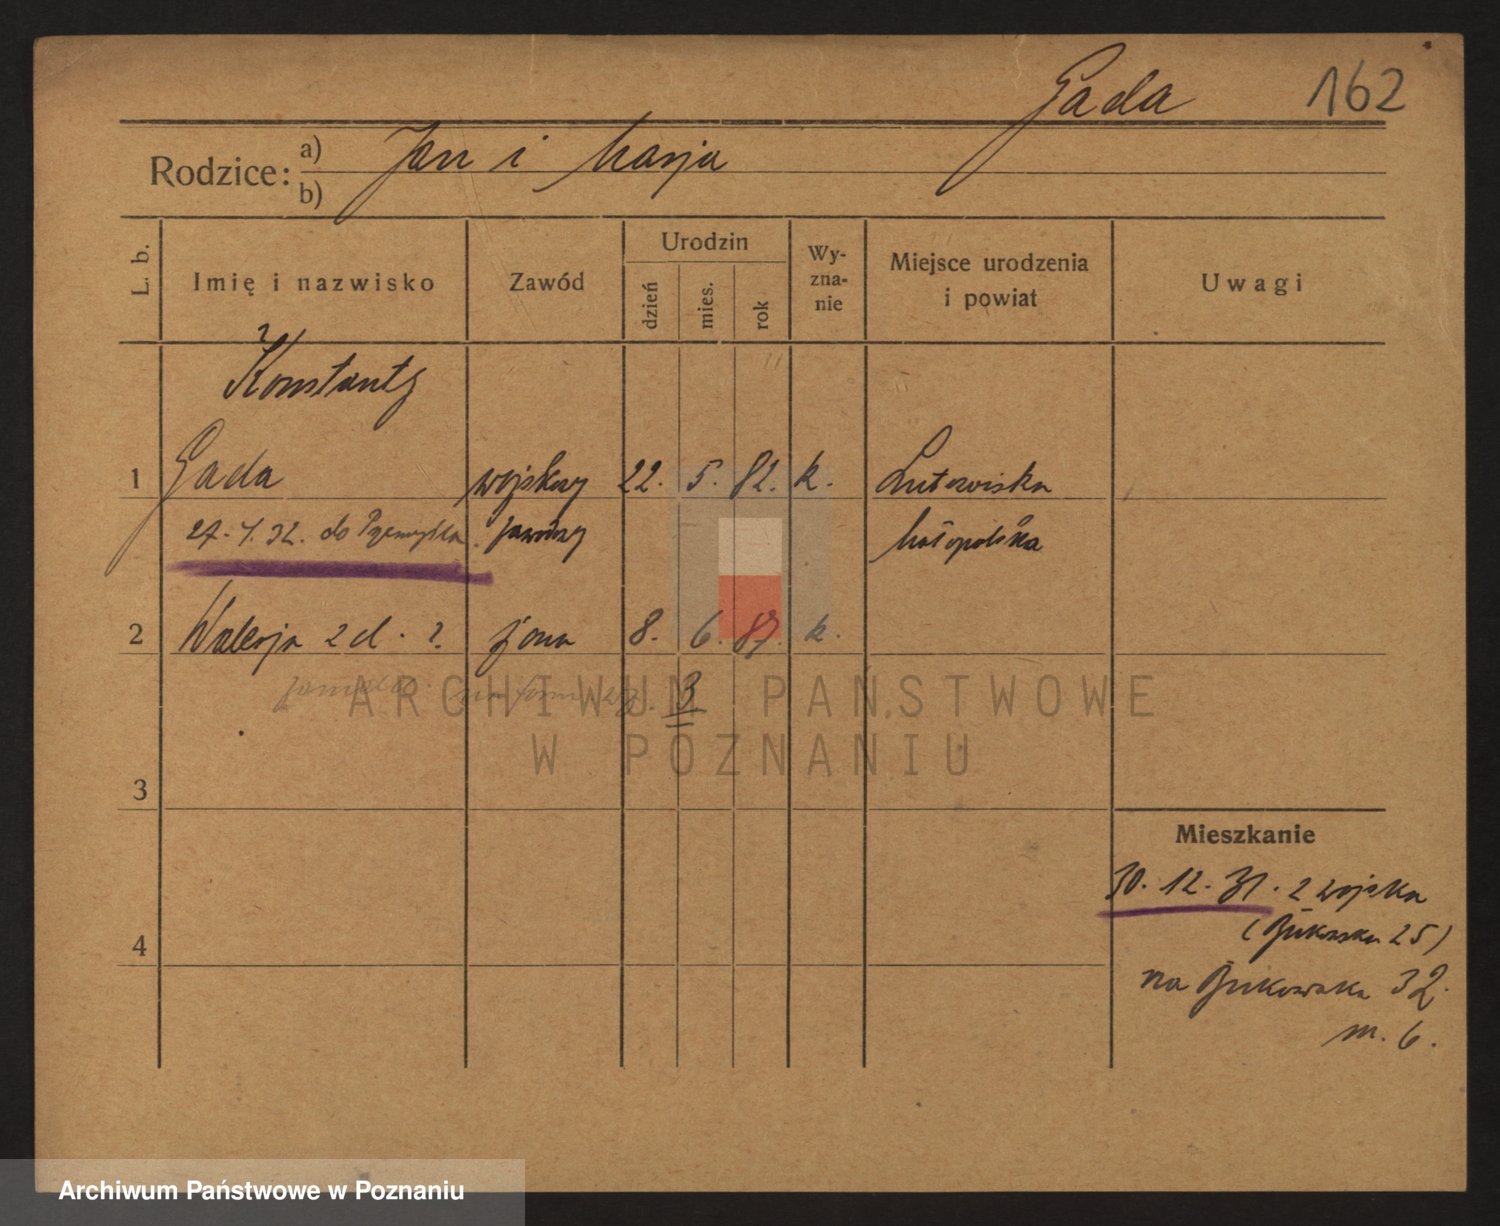 Gada 162
Rodzice: a) Jan i Marja
b)
L. b. Imię i nazwisko Zawód Urodzin dzień mies. rok Wy-zna-nie Miejsce urodzenia i powiat Uwagi
Konstanty
1 Gada wojskowy 22. 5. 82. k. Lutowiska
27. 7. 32. do zawodowy Małopolska
2 Walerja z d. ? żona 8. 6. 87. k.
3
ARCHIWUM PAŃSTWOWE
W POZNANIU
3
Mieszkanie
30. 12. 31. z wojska
4 (Bukowska 25)
na Bukowska 32.
m. 6.
Archiwum Państwowe w Poznaniu